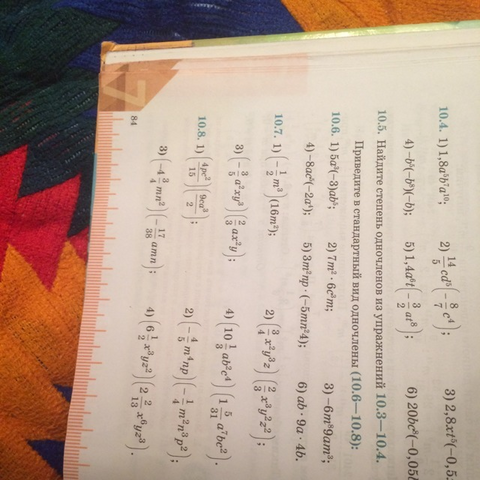 10.4. 1) 1,8a⁵b⁷a¹⁰; 2) 14/5 cd⁵(−8/7 c⁴); 3) 2,8xt⁵(−0,5
4) −b⁴(−b⁸)(−b); 5) 1,4a⁶t(−3/2 at⁸); 6) 20bc⁸(−0,05b
10.5. Найдите степень одночленов из упражнений 10.3—10.4.
Приведите в стандартный вид одночлены (10.6—10.8):
10.6. 1) 5a³(−3)ab⁵; 2) 7m² · 6c³m; 3) −6m⁸9am³;
4) −8ac⁴(−2a⁴); 5) 3m²np · (−5mn²4); 6) ab · 9a · 4b.
10.7. 1) (−1/2 m³)(16m²); 2) (3/4 x²y³z)(2/3 x³y²z²);
3) (−3/5 a²xy³)(2/3 ax²y); 4) (10 1/3 ab²c⁴)(1 5/31 a⁷bc²).
10.8. 1) (4pc²/15)(9ca³/2); 2) (−4/5 m⁴np)(−1/4 m²n³p²);
3) (−4 3/4 mn²)(−17/38 amn); 4) (6 1/2 x³yz²)(2 2/13 x⁶yz³).
84
7